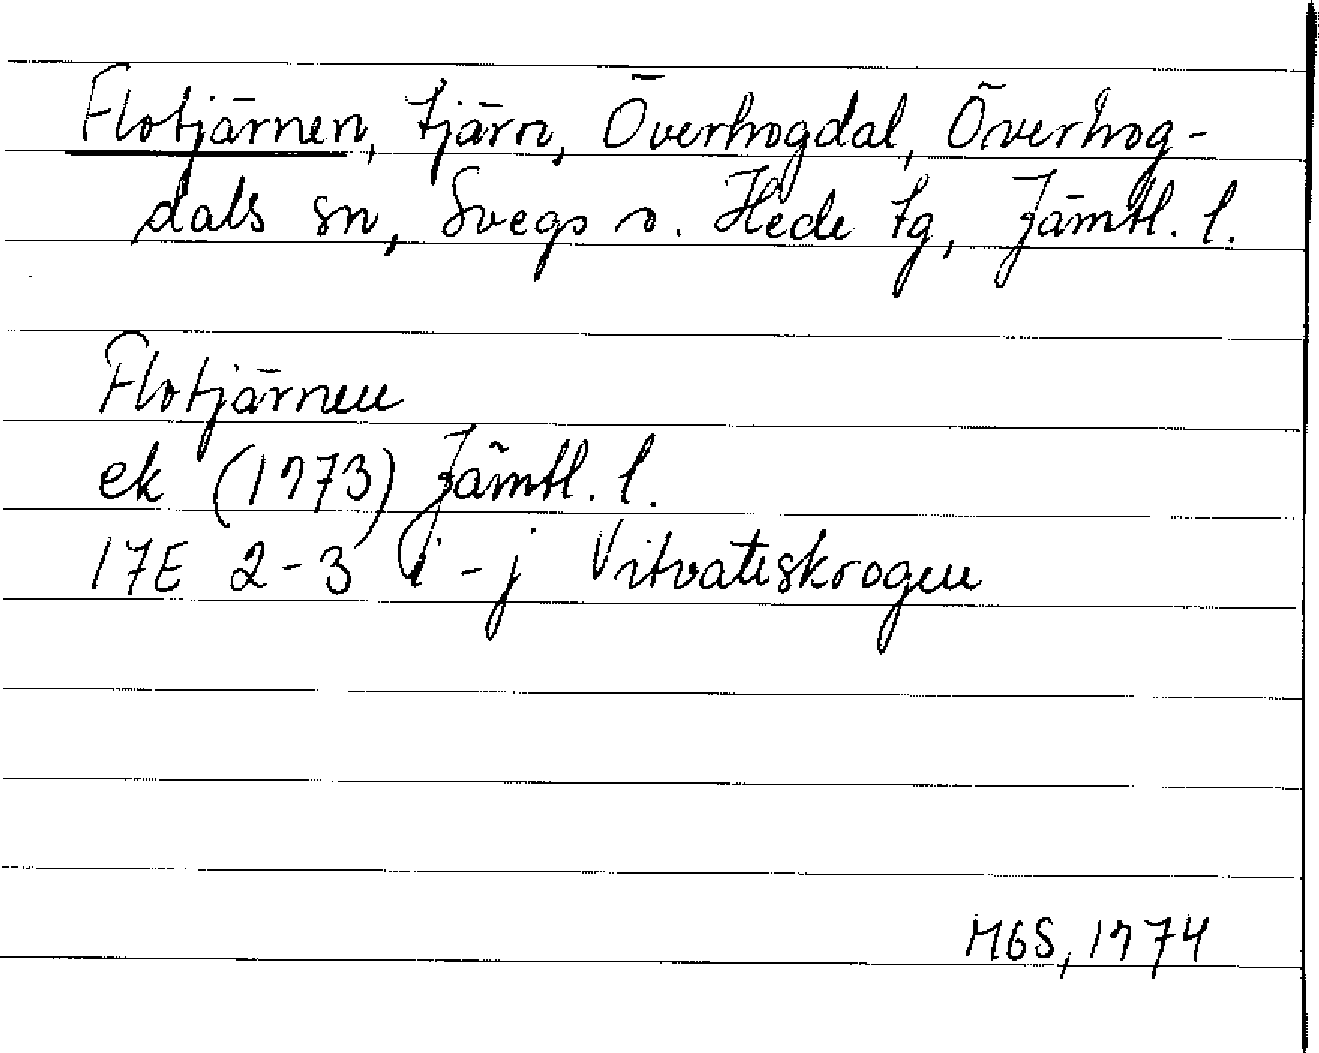 Flotjärnen, tjärn, Överhogdal, Överhog-
dals sn, Svegs o. Hede tg, Jämtl. l.
Flotjärnen
ek (1973) Jämtl. l.
17E 2-3 i-j Vitvattskrogen
MGS, 1974